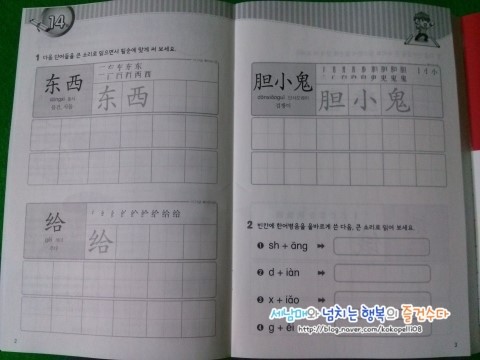 14
1 다음 단어들을 큰 소리로 읽으면서 필순에 맞게 써 보세요.
东西
dōngxi
东西
给
给
2
胆小鬼
dǎnxiǎoguǐ
겁쟁이
胆小鬼
2 빈칸에 한어병음을 올바르게 쓴 다음, 큰 소리로 읽어 보세요.
❶ sh + āng
❷ d + iàn
❸ x + iǎo
❹ g + ěi
3
세남매와 넘치는 행복의 즐건수다
http://blog.naver.com/kokopelli08